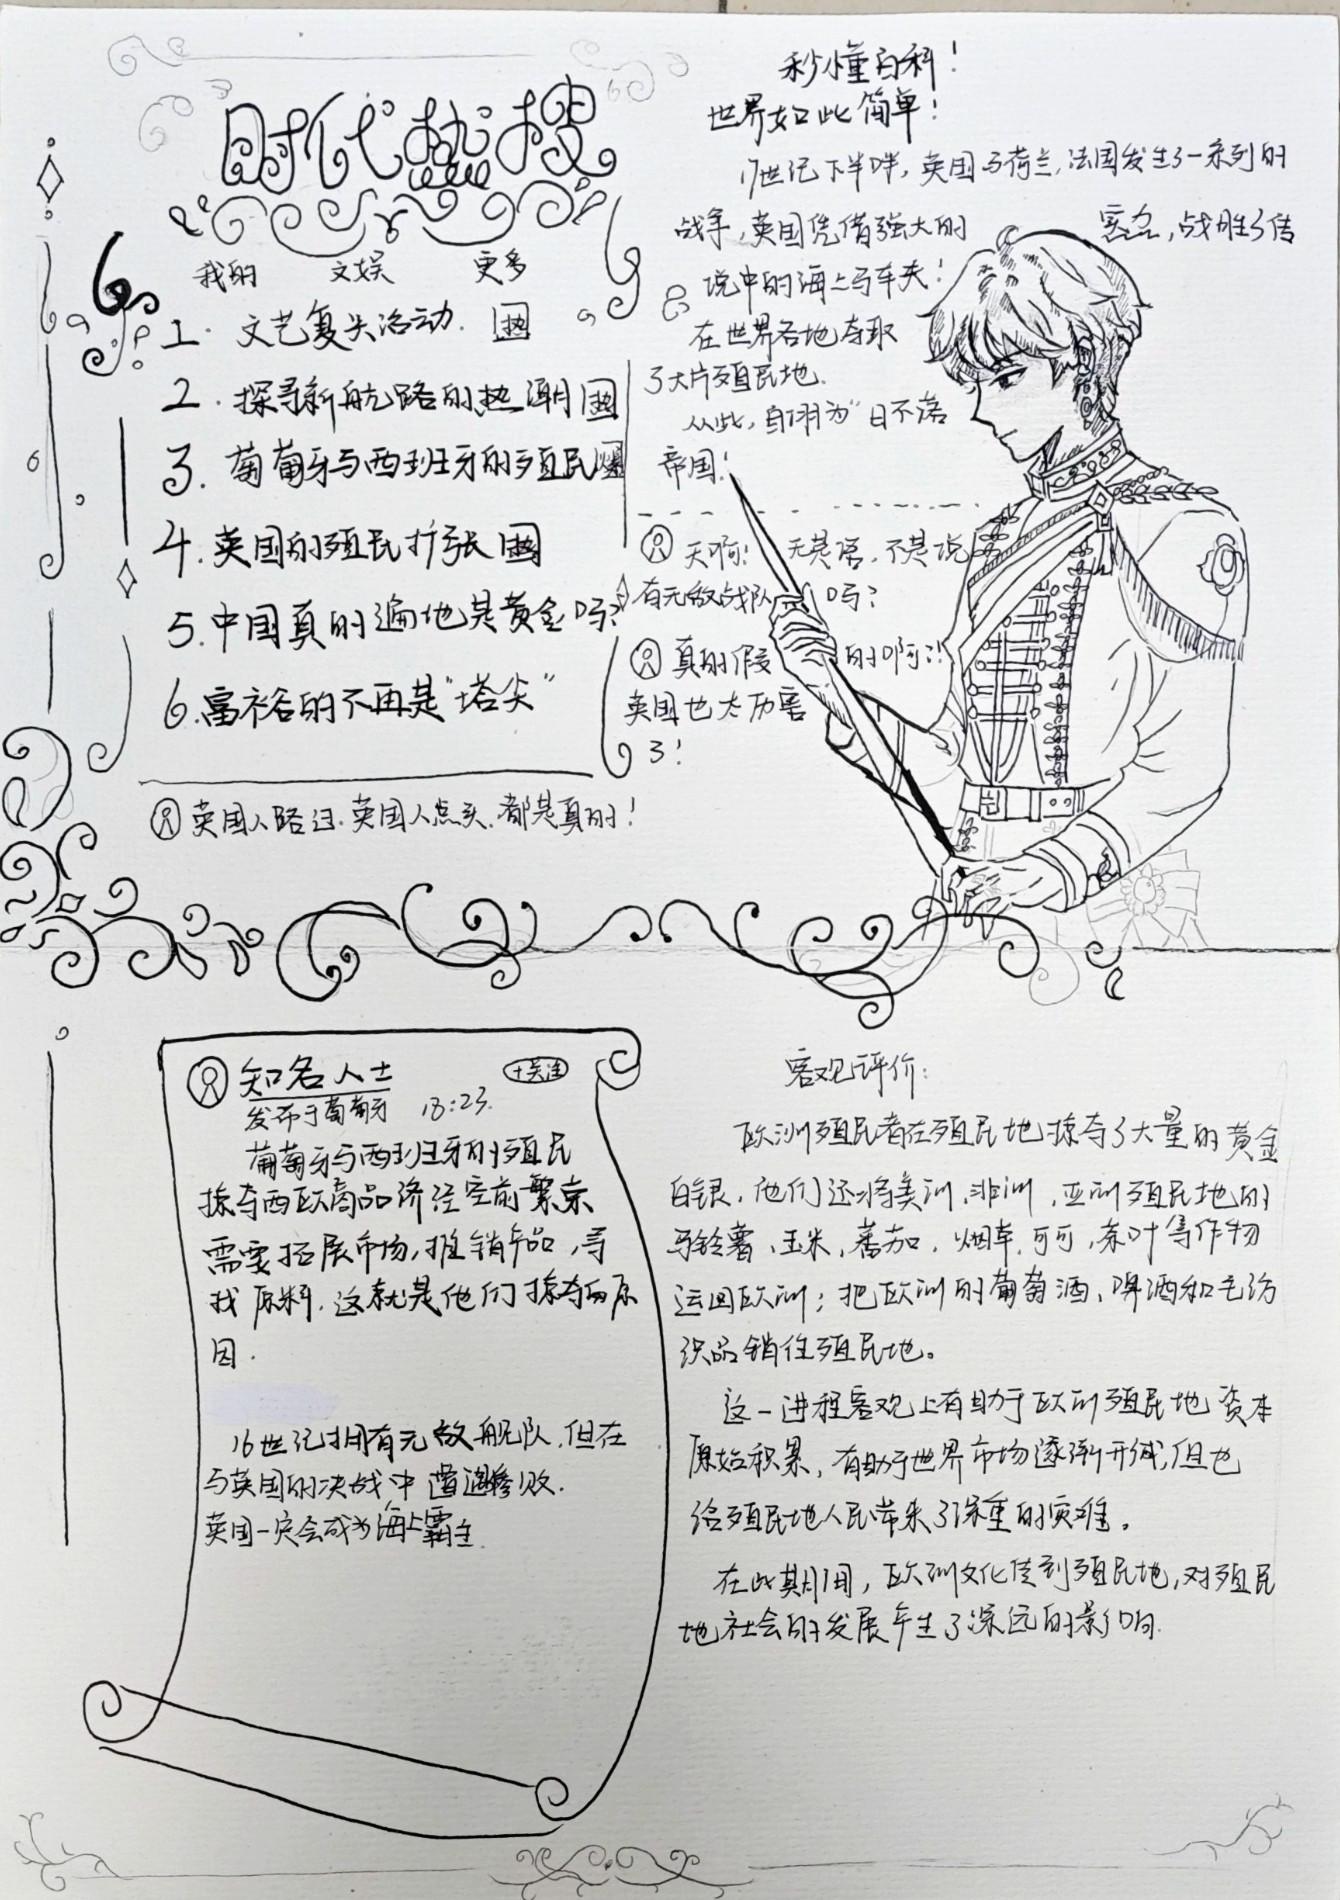 时代热搜
我的 文娱 更多
1. 文艺复兴活动. 热
2. 探寻新航路的热潮 热
3. 葡萄牙与西班牙的殖民 爆
4. 英国的殖民扩张 热
5. 中国真的遍地是黄金吗?
6. 富裕的不再是“塔尖”
英国人路过.英国人点头.都是真的!
秒懂百科!
世界如此简单!
17世纪下半叶,英国与荷兰,法国发生了一系列的
战争,英国凭借强大的 战胜了传
说中的海上马车夫!
在世界各地夺取
了大片殖民地.
从此,自诩为“日不落
帝国!
天啊! 不是说
有无敌战队 吗?
真的假 的啊?!
英国也太厉害
了!
知名人士 +关注
发布于葡萄牙 18:23.
葡萄牙与西班牙的殖民
掠夺西欧商品济经空前繁荣
需要拓展市场,推销产品,寻
找原料.这就是他们掠夺的原
因.
16世纪拥有无敌舰队.但在
与英国的决战中遭遇惨败.
英国一定会成为海上霸主.
客观评价:
欧洲殖民者在殖民地掠夺了大量的黄金
白银,他们还将美洲、非洲、亚洲殖民地的
马铃薯、玉米、蕃茄、烟草、可可、茶叶等作物
运回欧洲;把欧洲的葡萄酒、啤酒和毛纺
织品销往殖民地。
这一进程客观上有助于欧洲殖民地资本
原始积累,有助于世界市场逐渐形成,但也
给殖民地人民带来了深重的灾难。
在此期间,欧洲文化传到殖民地,对殖民
地社会的发展产生了深远的影响.